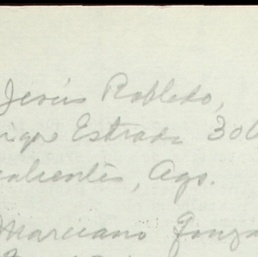 Jesús Robledo,
ique Estrada 30
calientes, Ags.
Marciano Gonza